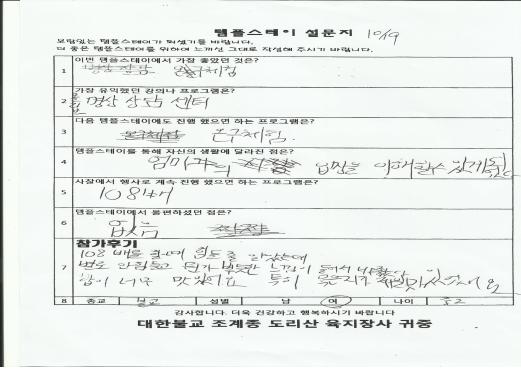 템플스테이 설문지 10/19
보람있는 템플스테이가 되셨기를 바랍니다.
더 좋은 템플스테이를 위하여 느끼신 그대로 작성해 주시기 바랍니다.
이번 템플스테이에서 가장 좋았던 것은?
1
가장 유익했던 강의나 프로그램은?
2 명상 상담 센터
다음 템플스테이에도 진행 했으면 하는 프로그램은?
3 문구체험.
템플스테이를 통해 자신의 생활에 달라진 점은?
4 엄마 입장을 이해할수 있게됨
사찰에서 행사로 계속 진행 했으면 하는 프로그램은?
5 108배
템플스테이에서 불편하셨던 점은?
6 없음
참가후기
108 배를 힘들 줄 알았는데
7 별로 안힘들고 뭔가 뿌듯한 느낌이 들어서
밥이 너무 맛있어요 특히 맛있었어요
8 종교 불교 성별 남 여 나이 중2
감사합니다. 더욱 건강하고 행복하시기 바랍니다
대한불교 조계종 도리산 육지장사 귀중